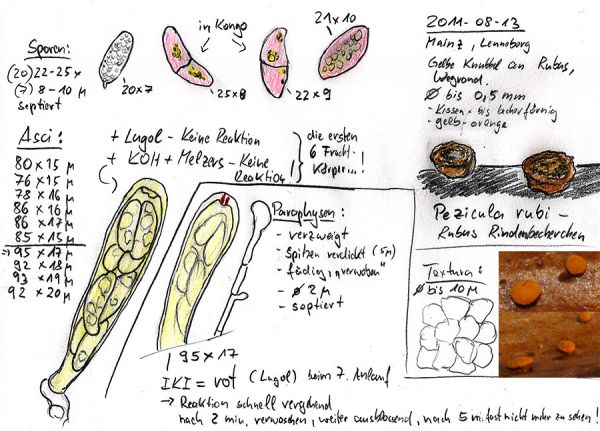 Sporen:
(20) 22-25 x
(7) 8-10 µ
septiert
20x7
in Kongo
25x8
22x9
21x10
2011-08-13
Mainz, Lenneberg
Gelbe Knubbel an Rubus,
Wegrand.
Ø bis 0,5 mm
- Kissen- bis becherförmig
- gelb-orange
Asci:
80 x 15 µ
76 x 15 µ
78 x 16 µ
86 x 16 µ
86 x 17 µ
85 x 15 µ
→ 95 x 17 µ
92 x 18 µ
93 x 19 µ
92 x 20 µ
+ Lugol - Keine Reaktion
+ KOH + Melzers - Keine
Reaktion!
die ersten
6 Frucht-
körper...!
Paraphysen:
- verzweigt
- Spitzen verdickt (5µ)
- fädig, "verwoben"
- Ø 2 µ
- septiert
Pezicula rubi -
Rubus Rindenbecherchen
Textura:
Ø bis 10 µ
95 x 17
IKI = rot (Lugol) beim 7. Anlauf
→ Reaktion schnell vergehend
nach 2 min. verwaschen, weiter ausblassend, nach 5 min fast nicht mehr zu sehen!